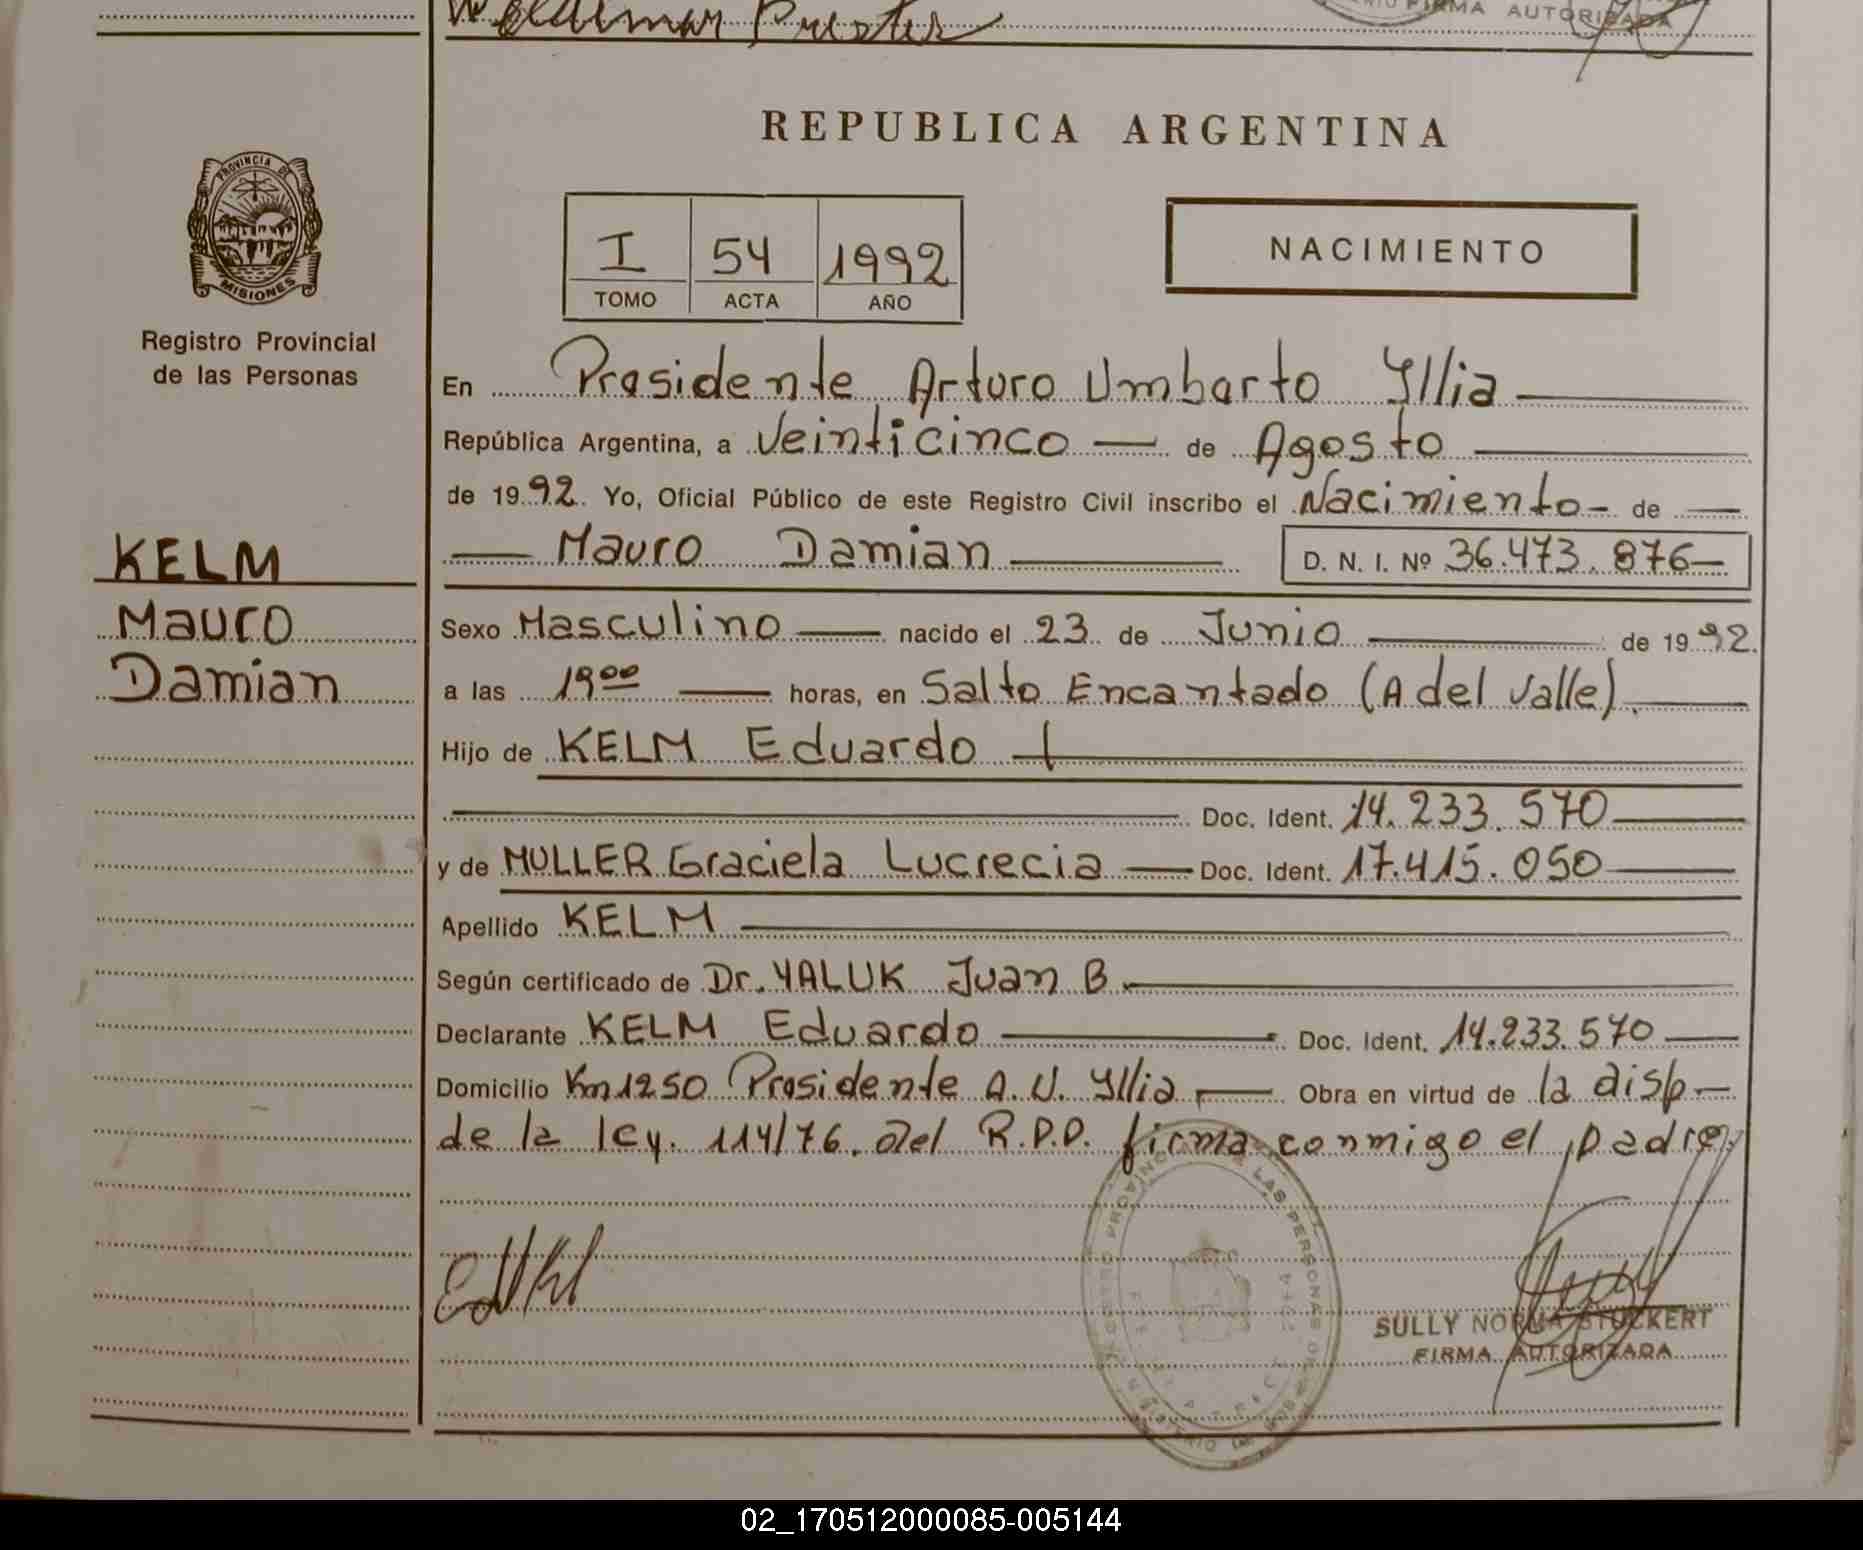 Waldimar
FIRMA AUTORIZADA
REPUBLICA ARGENTINA
PROVINCIA DE
MISIONES
Registro Provincial
de las Personas
I 54 1992
TOMO ACTA AÑO
NACIMIENTO
En Presidente Arturo Umberto Yllia
República Argentina, a Veinticinco — de Agosto
de 1992. Yo, Oficial Público de este Registro Civil inscribo el Nacimiento - de —
— Mauro Damian — D. N. I. Nº 36.473.876 —
KELM
Mauro
Damian
Sexo Masculino — nacido el 23 de Junio — de 1992.
a las 19 00 — horas, en Salto Encantado (A del Valle). —
Hijo de KELM Eduardo —
Doc. Ident. 14.233.570 —
y de MULLER Graciela Lucrecia — Doc. Ident. 17.415.050 —
Apellido KELM —
Según certificado de Dr. YALUK Juan B —
Declarante KELM Eduardo — Doc. Ident. 14.233.570 —
Domicilio Km 1250 Presidente A. U. Yllia — Obra en virtud de la disp —
de la ley. 114/76. del R.P.P. firma conmigo el padre
SULLY NORMA STUCKERT
FIRMA AUTORIZADA
02_170512000085-005144